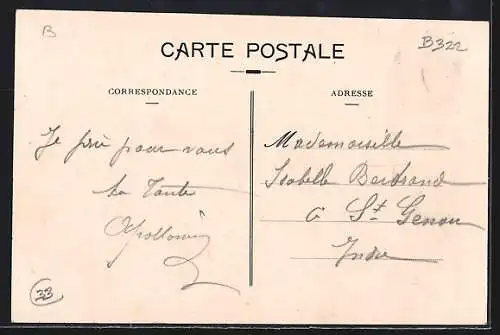 B
B322
CARTE POSTALE
CORRESPONDANCE
ADRESSE
Je prie pour vous
ta Tante
Apollonie
Mademoiselle
Isabelle Bertrand
à St Genou
Indre
33